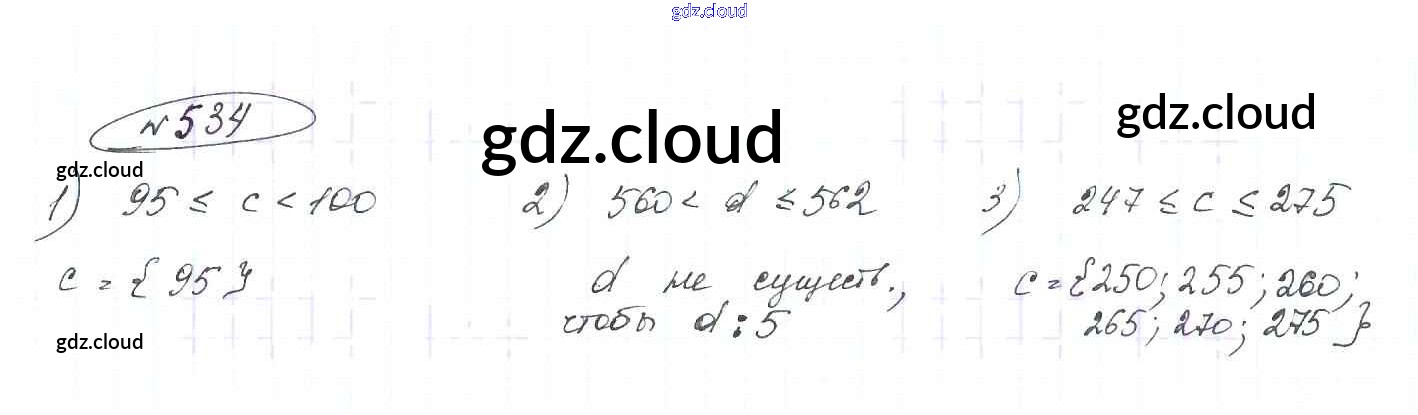 gdz.cloud
№ 534
gdz.cloud
gdz.cloud
gdz.cloud
1) 95 ≤ c < 100
2) 560 < d ≤ 562
3) 247 ≤ c ≤ 275
c = { 95 }
d не существ.,
чтобы d ⋮ 5
c = {250; 255; 260;
265; 270; 275 }
gdz.cloud